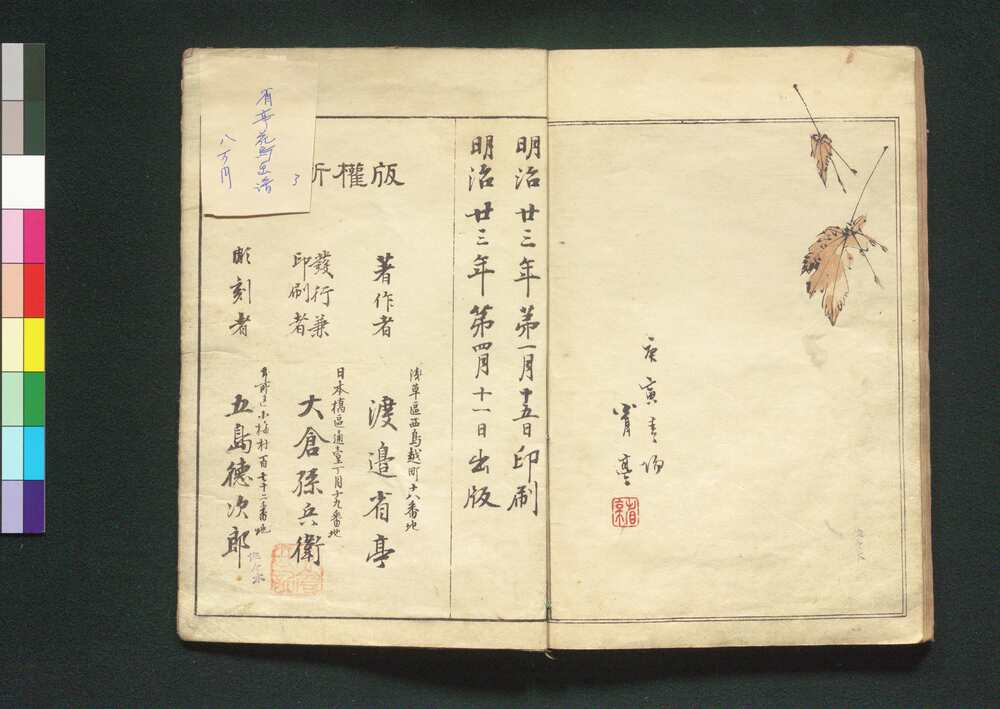 庚寅春日
省亭
省亭
明治廿三年第一月十五日印刷
明治廿三年第四月十一日出版
版權所
著作者
淺草區西鳥越町十八番地
渡邉省亭
發行兼
印刷者
日本橋區通壹丁目十九番地
大倉孫兵衛
彫刻者
小梅村百七十二番地
五島徳次郎
省亭花鳥画譜
八万円